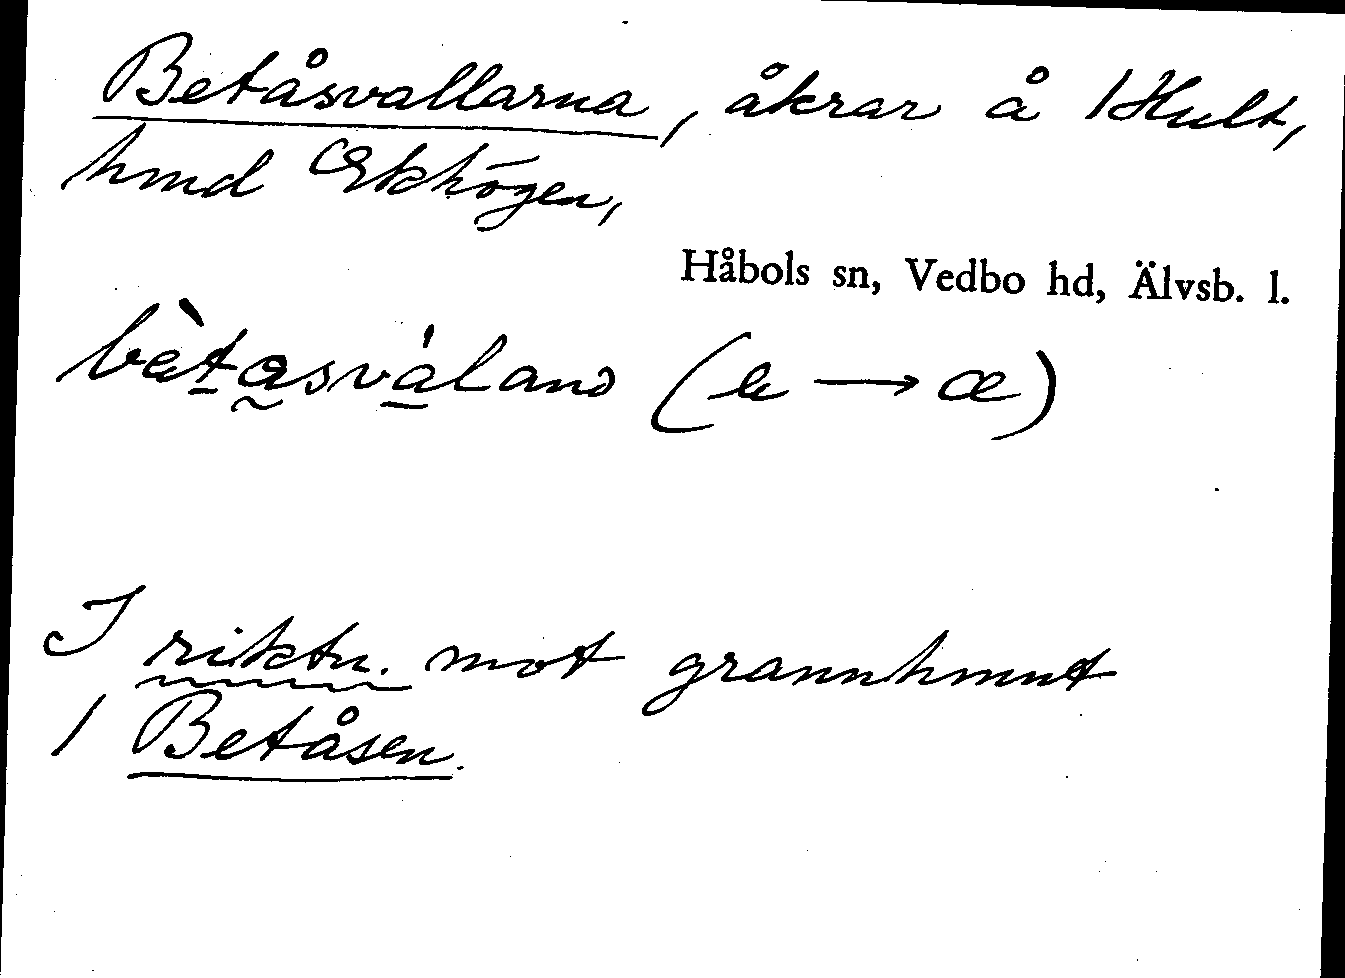 Betåsvallarna, åkrar å 1 Hult,
hmd Ekhögen,
Håbols sn, Vedbo hd, Älvsb. l.
I riktn. mot grannhmnt
1 Betåsen.